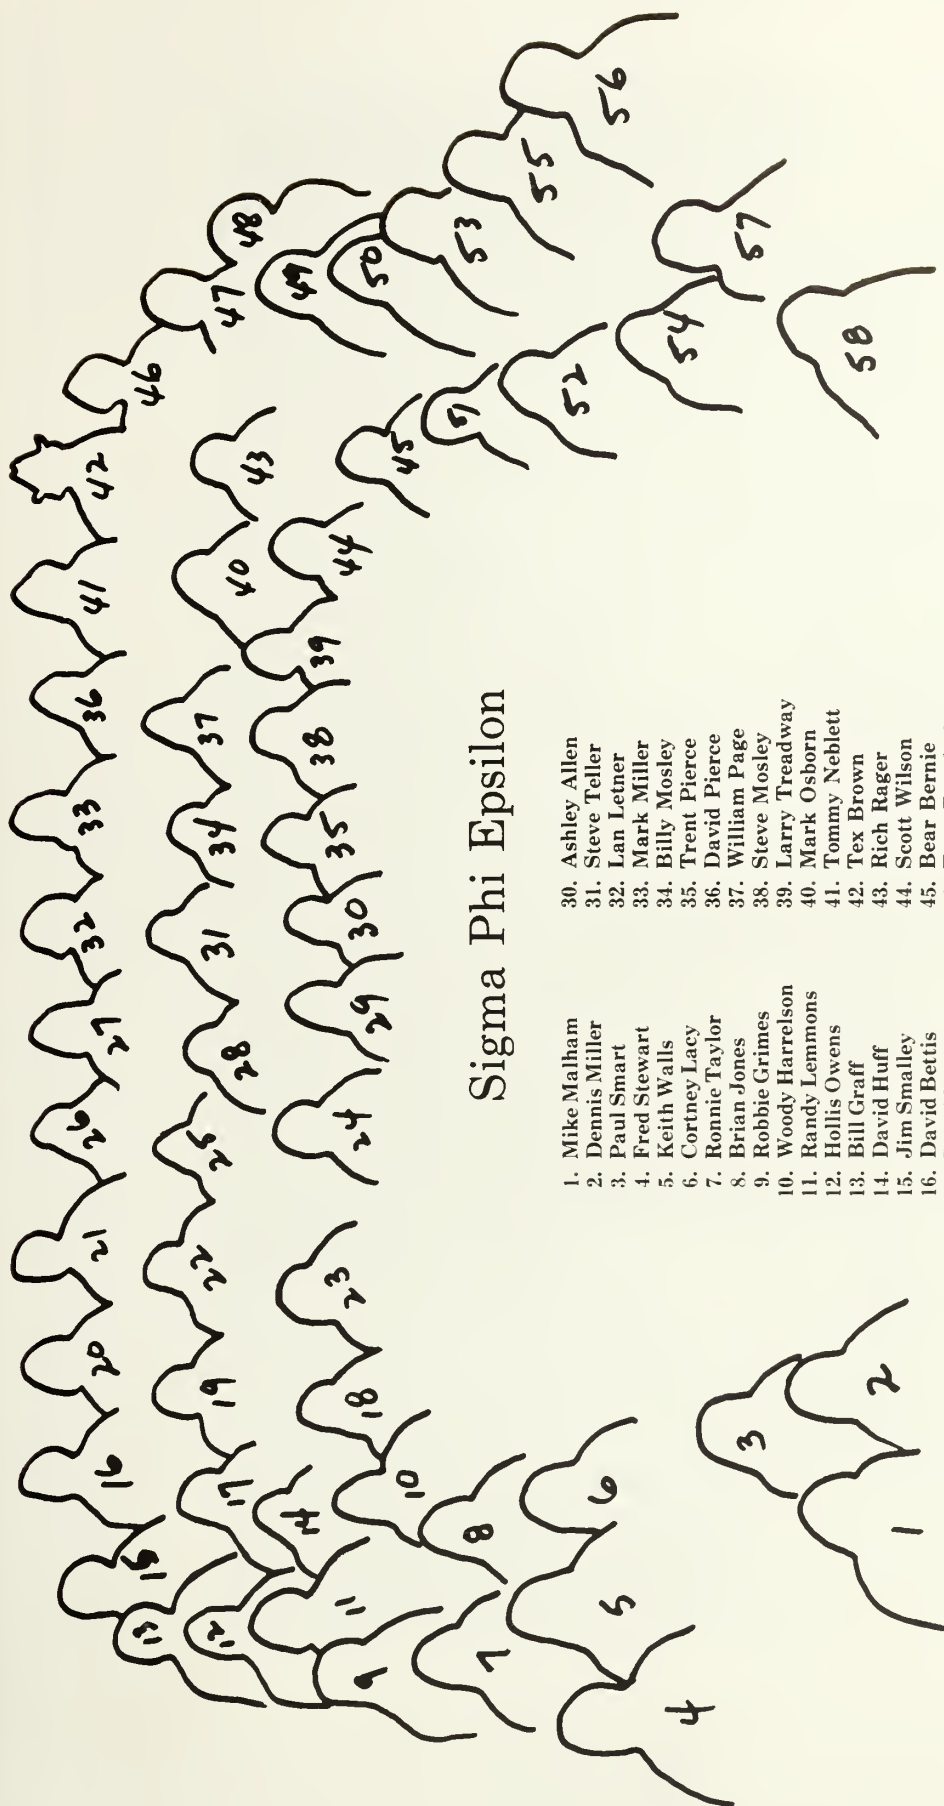 42
41
36
33
32
27
26
21
20
16
46
47
48
15
13
43
40
37
34
31
28
25
22
19
17
12
49
50
45
44
39
38
35
30
29
24
23
18
14
11
53
51
10
9
55
52
8
7
56
54
6
5
57
4
58
3
2
1
Sigma Phi Epsilon
1. Mike Malham
2. Dennis Miller
3. Paul Smart
4. Fred Stewart
5. Keith Walls
6. Cortney Lacy
7. Ronnie Taylor
8. Brian Jones
9. Robbie Grimes
10. Woody Harrelson
11. Randy Lemmons
12. Hollis Owens
13. Bill Graff
14. David Huff
15. Jim Smalley
16. David Bettis
30. Ashley Allen
31. Steve Teller
32. Lan Letner
33. Mark Miller
34. Billy Mosley
35. Trent Pierce
36. David Pierce
37. William Page
38. Steve Mosley
39. Larry Treadway
40. Mark Osborn
41. Tommy Neblett
42. Tex Brown
43. Rich Rager
44. Scott Wilson
45. Bear Bernie